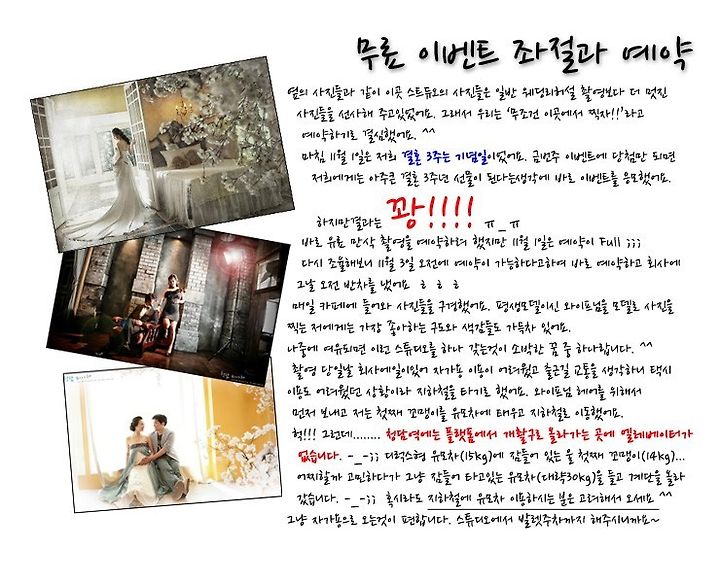 무료 이벤트 좌절과 예약
옆의 사진들과 같이 이곳 스튜듀오의 사진들은 일반 웨딩리허설 촬영보다 더 멋진
사진들을 선사해 주고있었어요. 그래서 우리는 '무조건 이곳에서 찍자!!'라고
예약하기로 결심했어요. ^^
마침 11월 1일은 저희 결혼 3주는 기념일이었어요. 금번주 이벤트에 당첨만 되면
저희에게는 아주큰 결혼 3주년 선물이 된다는생각에 바로 이벤트를 응모했어요.
하지만결과는 꽝!!!! ㅠ_ㅠ
바로 유료 만삭 촬영을 예약하려 했지만 11월 1일은 예약이 Full ;;;
다시 조율해보니 11월 3일 오전에 예약이 가능하다고하여 바로 예약하고 회사에
그날 오전 반차를 냈어요 ㅎㅎㅎ
매일 카페에 들어와 사진들을 구경했어요. 평생모델이신 와이프님을 모델로 사진을
찍는 저에게는 가장 좋아하는 구도와 색감들도 가득차 있어요.
나중에 여유되면 이런 스튜디오를 하나 갖는것이 소박한 꿈 중 하나랍니다. ^^
촬영 당일날 회사에일이있어 자가용 이용이 어려웠고 출근길 교통을 생각하니 택시
이용도 어려웠던 상황이라 지하철을 타기로 했어요. 와이프님 헤어를 위해서
먼저 보내고 저는 첫째 꼬맹이를 유모차에 태우고 지하철로 이동했어요.
헉!!! 그런데........ 청담역에는 플랫폼에서 개찰구로 올라가는 곳에 엘레베이터가
없습니다. -_-;; 디럭스형 유모차(15kg)에 잠들어 있는 울 첫째 꼬맹이(14kg)...
어찌할까 고민하다가 그냥 잠들어 타고있는 유모차(대략30kg)을 들고 계단을 올라
갔습니다. -_-;; 혹시라도 지하철에 유모차 이용하시는 분은 고려해서 오세요 ^^
그냥 자가용으로 오는것이 편합니다. 스튜디오에서 발렛주차까지 해주시니까요~